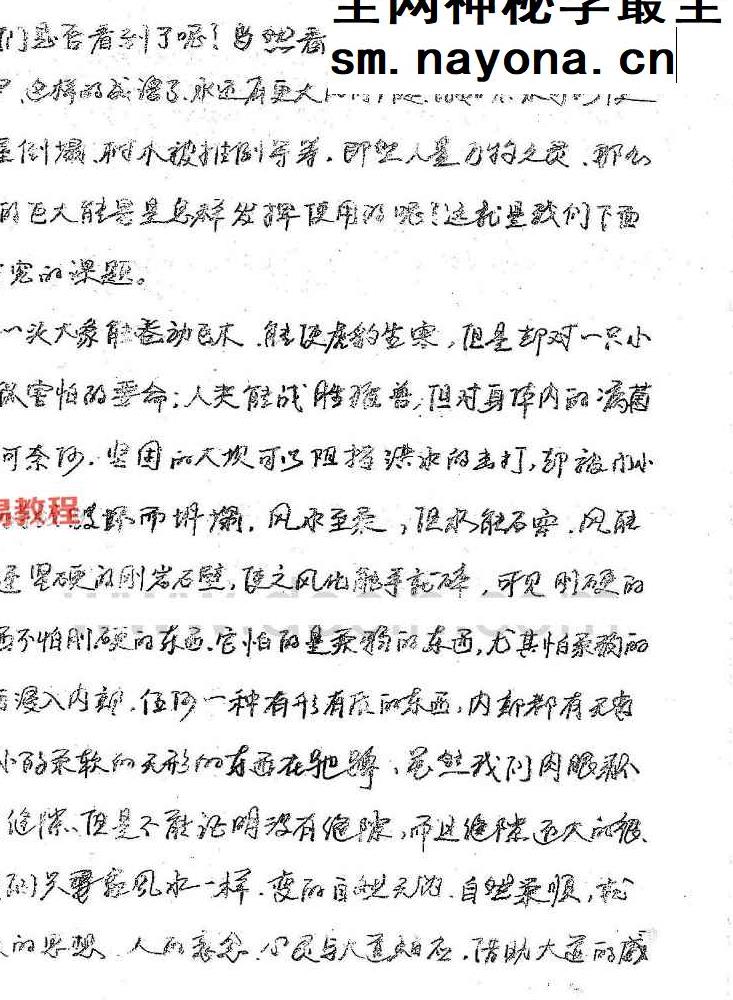 全网神秘学最全
sm.nayona.cn
们是否看到了呢!当然看
这样的成语了.永远有更大
倒塌.树木被推倒等等.即然人是万物之灵.那么
的巨大能量是怎样发挥使用的呢!这就是我们下面
究的课题。
一次大象能卷动巨木.能使虎豹生寒,但是却对一只小
害怕的要命;人类能战胜猛兽,但对身体内的病菌
可奈何.坚固的大坝可以阻挡洪水的击打,却被小小
易教程
而坍塌.风水至柔,但水能石穿.风能
坚硬的刚岩石壁,使之风化能手就碎,可见刚硬的
西不怕刚硬的东西.它怕的是柔弱的东西,尤其怕柔弱的
浸入内部.任何一种有形有质的东西,内部都有无穷
小的柔软的无形的东西在驰骋、虽然我们肉眼
缝隙、但是不能证明没有缝隙,而且缝隙还大的很.
们只要象风水一样.变的自然无 .自然柔顺,
的思想.人的意念.心灵与大道相应.借助大道的威